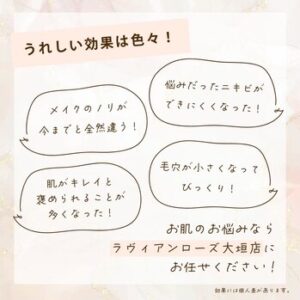 うれしい効果は色々！
悩みだったニキビが
できにくくなった！
メイクのノリが
今までと全然違う！
毛穴が小さくなって
びっくり！
肌がキレイと
褒められることが
多くなった！
お肌のお悩みなら
ラヴィアンローズ大垣店に
お任せください！
効果には個人差が有ります。